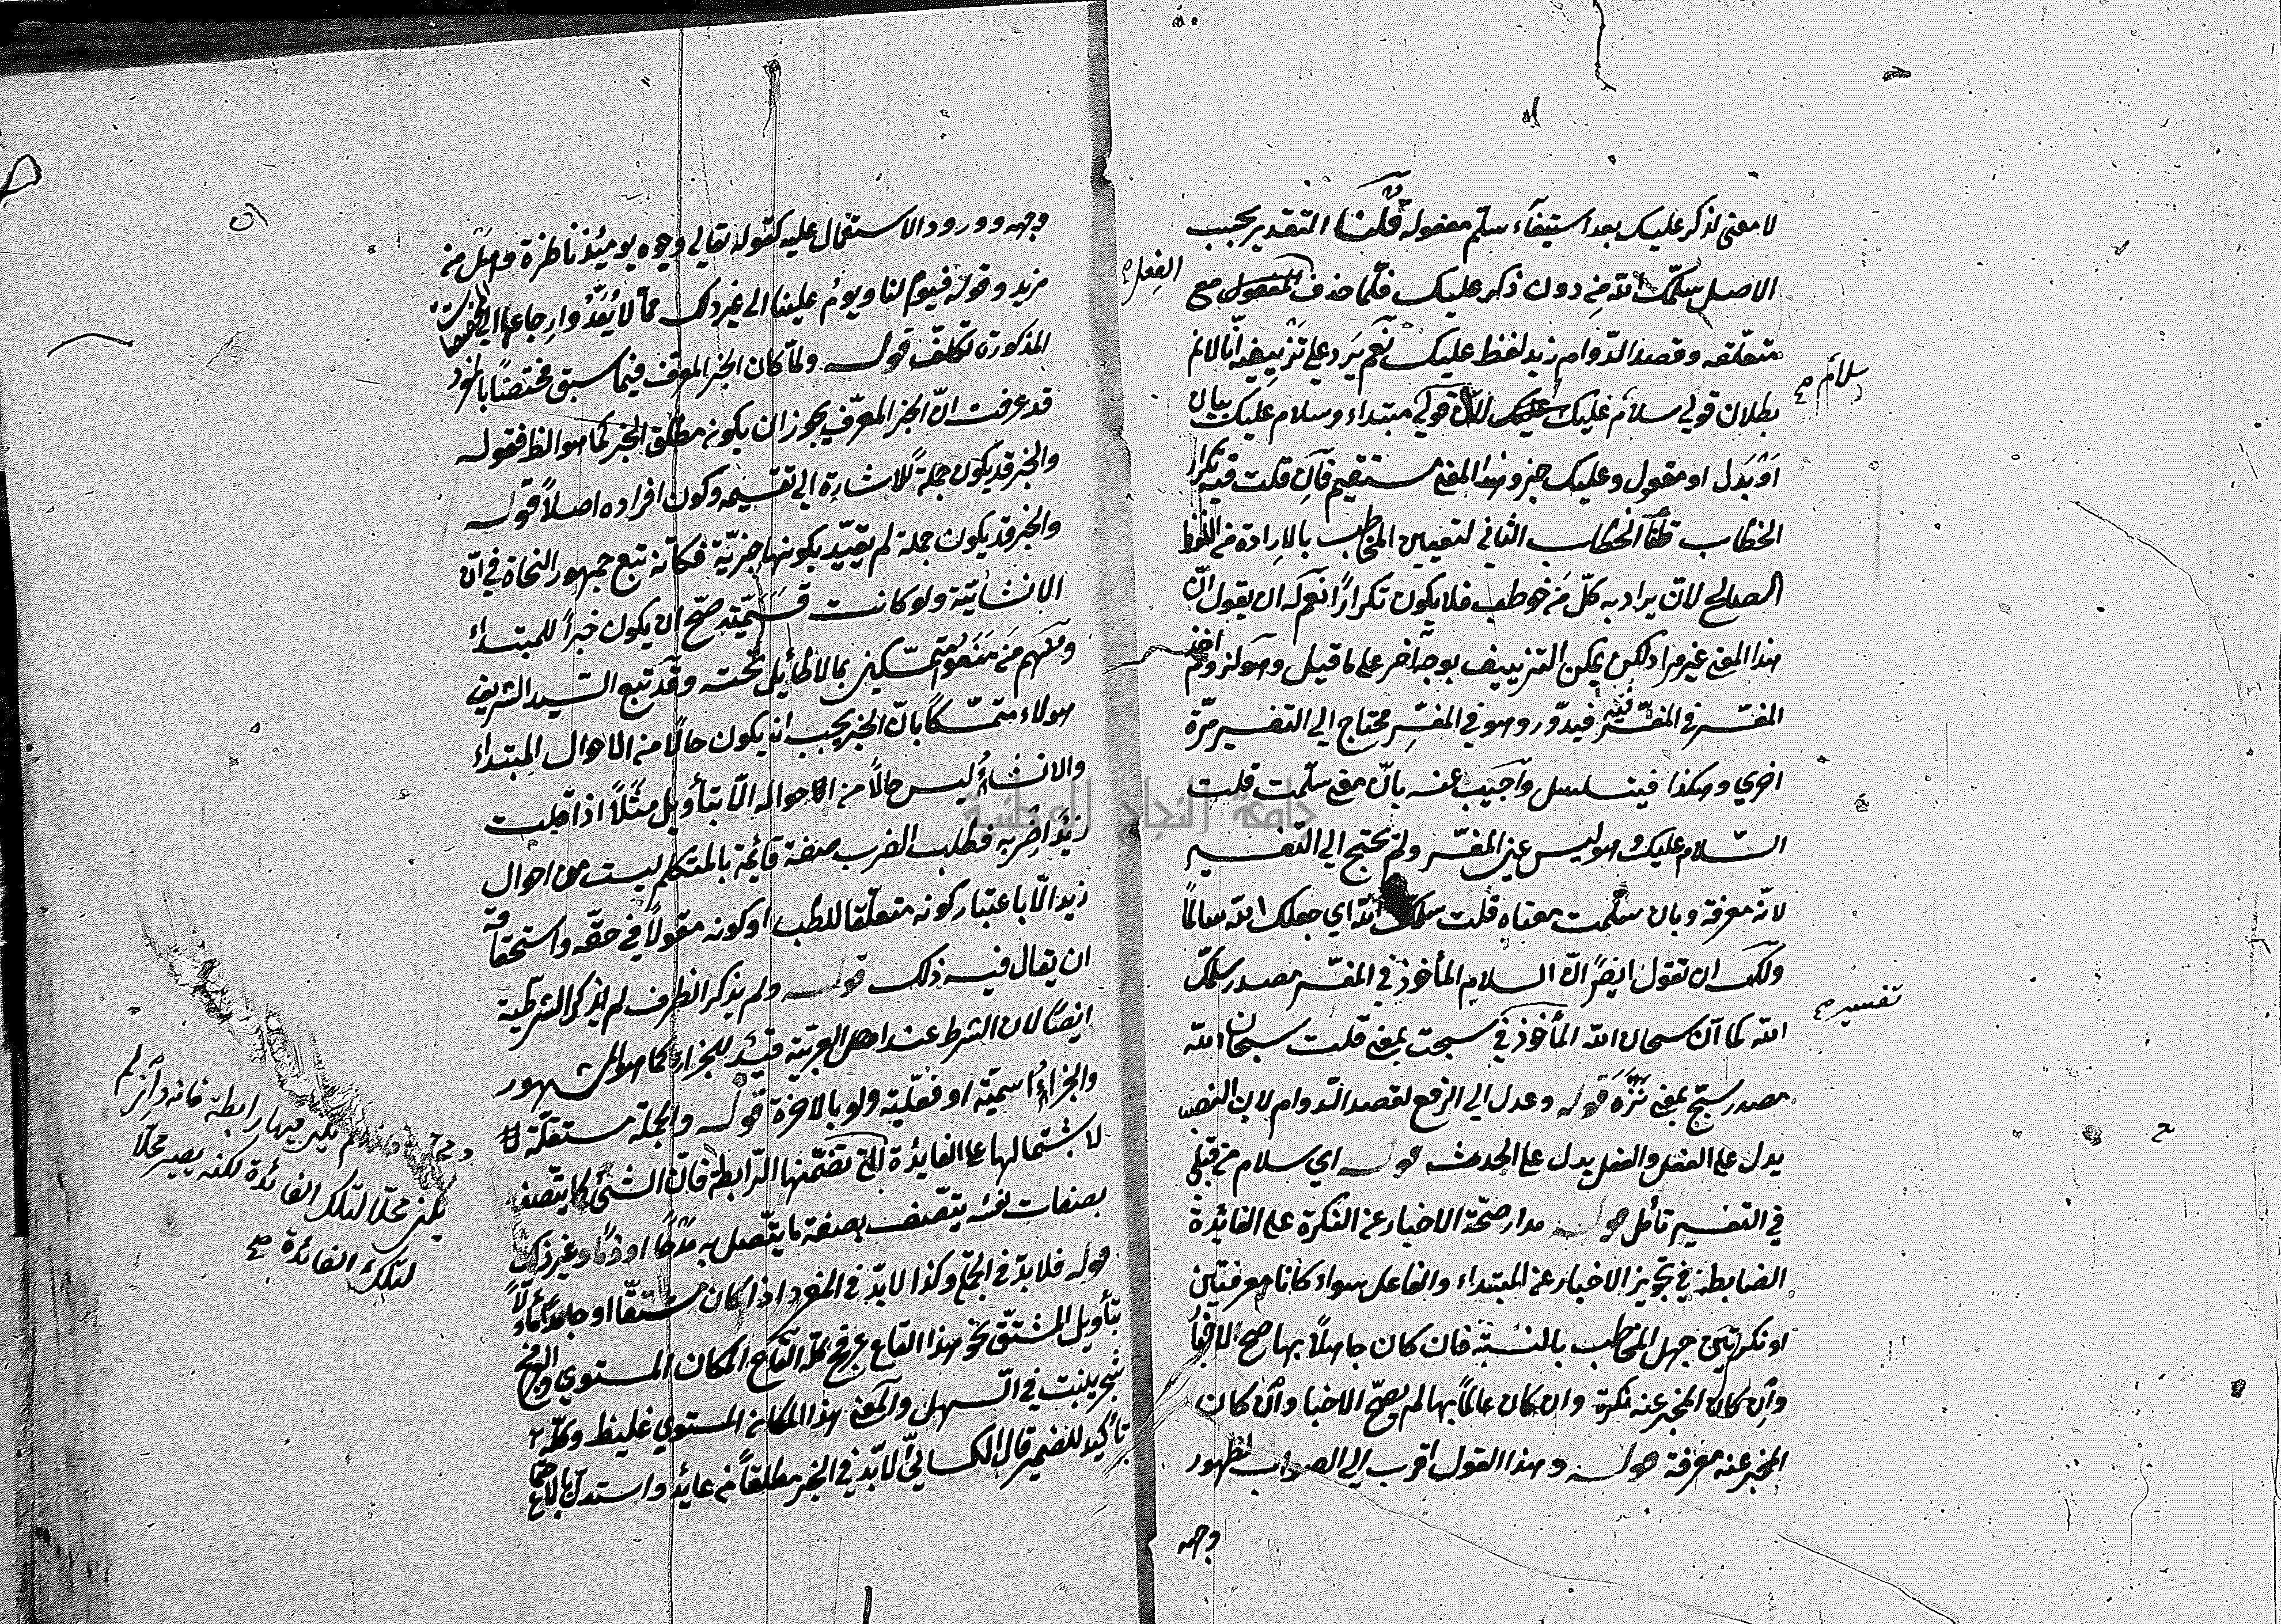 لا معنى لذكر عليك بعد استيفآء سلّم مفعوله قُلْنَا التقدير بحسب
الاصل سلّمك الله من دون ذكر عليك فلّما حذف المفعول مع
متعلّقه وقصد الدّوام زيد لفظ عليك نعم يَرد على تزييفه انّا لا نم
بطلان قولي سلام عليك عليك لانّ قولي مبتداء وسلام عليك بيان
اَوْ بَدل او مقول وعليك خبر وهذا المعنى مستقيم فان قلت فيه تكرار
الخطاب قلنا الخطاب الثاني لتعيين المخاطب بالارادة من اللفظ
الصالح لان يراد به كلّ من خوطب فلا يكون تكرارًا نعم له ان يقول انّ
هذا المعنى غير مراد لكن يمكن التزييف بوجه آخر على ما قيل وهو لزوم اخذ
المفسّر في المفسّر فيدور وهو في المفسِّر محتاج الى التفسير مرّة
اخرى وهكذا فيتسلسل واجيب عنه بانّ معنى سلّمت قلت
السّلام عليك وهو ليس عين المفسّر ولم يحتج الى التفسير
لانّه معرفة وبان سلّمت معناه قلت سلّمك الله اي جعلك الله سالماً
ولك ان تقول ايضًا انّ السلام المأخوذ في المفسّر مصدر سلّمك
الله كما انّ سبحان الله المأخوذ في سبحت بمعنى قلت سبحان الله
مصدر سبّح بمعنى نَزَّهَ قوله وعدل الى الرفع لقصد الدّوام لان النصب
يدل على الفعل والفعل يدل على الحدث قوله اي سلام من قبلي
في التفسير تأمل قوله مدار صحّة الاخبار عن النكرة على الفائدة
الضابطة في تجويز الاخبار عن المبتداء والفاعل سواء كانا معرفتين
او نكرتين جهل المخاطب بالنسبة فان كان جاهلاً بها صح الاخبار
وان كان المخبر عنه نكرة وان كان عالماً بها لم يصحّ الاخبار وان كان
المخبر عنه معرفة قوله وهذا القول اقرب الى الصواب لظهور
وجهه
الفعل صح
سلام صح
تفسير صح
وجهه وورود الاستعمال عليه كقوله تعالى وجوه يومئذ ناظرة وهل من
مزيد وقوله فيوم لنا ويوم علينا الى غير ذلك ممّا لا يُعَدُّ وارجاعها الى المخصصات
المذكورة تكلّف قوله ولمّا كان الخبر المعرّف فيما سبق مختصّا بالمفرد
قد عرفت انّ الخبر المعرّف يجوز ان يكون مطلق الخبر كما هو الظ فقوله
والخبر قد يكون جملة للاشارة الى تقسيمه وكون افراده اصلاً قوله
والخبر قد يكون جملة لم يقيّد بكونها خبريّة فكانّه تبع جمهور النحاة في انّ
الانشائيّة ولو كانت قسميّة صحّ ان يكون خبراً للمبتداء
ومنهم من منعه متمسّكين بما لا طائل تحته وقد تبع السّيد الشريف
هؤلاء متمسّكاً بانّ الخبر يجب ان يكون حالاً من احوال المبتداء
والانشاء ليس حالاً من احواله الّا بتأويل مثلاً اذا قلت
زيدٌ اضربه فطلب الضرب صفة قائمة بالمتكلم ليست من احوال
زيد الّا باعتبار كونه متعلّقا للطلب او كونه مقولاً في حقّه واستحقاقه
ان يقال فيه ذلك قوله ولم يذكر الظرف لم يذكر الشرطية
ايضًا لان الشرط عند اهل العربية قيد للجزاء كما هو المشهور
والجزاء اسميّة او فعليّة ولو بالاخرة قوله والجملة مستقلّة
لاشتمالها على الفائدة التي تضمّنها الرّابطة فانّ الشئ كما يتّصف
بصفات نفسه يتّصف بصفة ما يتّصل به مدحًا او ذمًّا وغير ذلك
قوله فلا بدّ في الجملة وكذا لا بدّ في المفرد اذا كان مشتقّا او جامداً مأوّلاً
بتأويل المشتقّ نحو هذا القاع عرفج كلّه القاع المكان المستوي والعرفج
شجر ينبت في السّهل والمعنى هذا المكان المستوي غليظ وكلّه
تأكيد للضمير قال الكسائيّ لا بدّ في الخبر مطلقاً من عائد واستدلّ
لم يكن فيها رابطة فانه وان لم
يكن محلّا لتلك الفائدة لكنه يصير محلّا
لتلك الفائدة صح
جامعة النجاح الوطنية